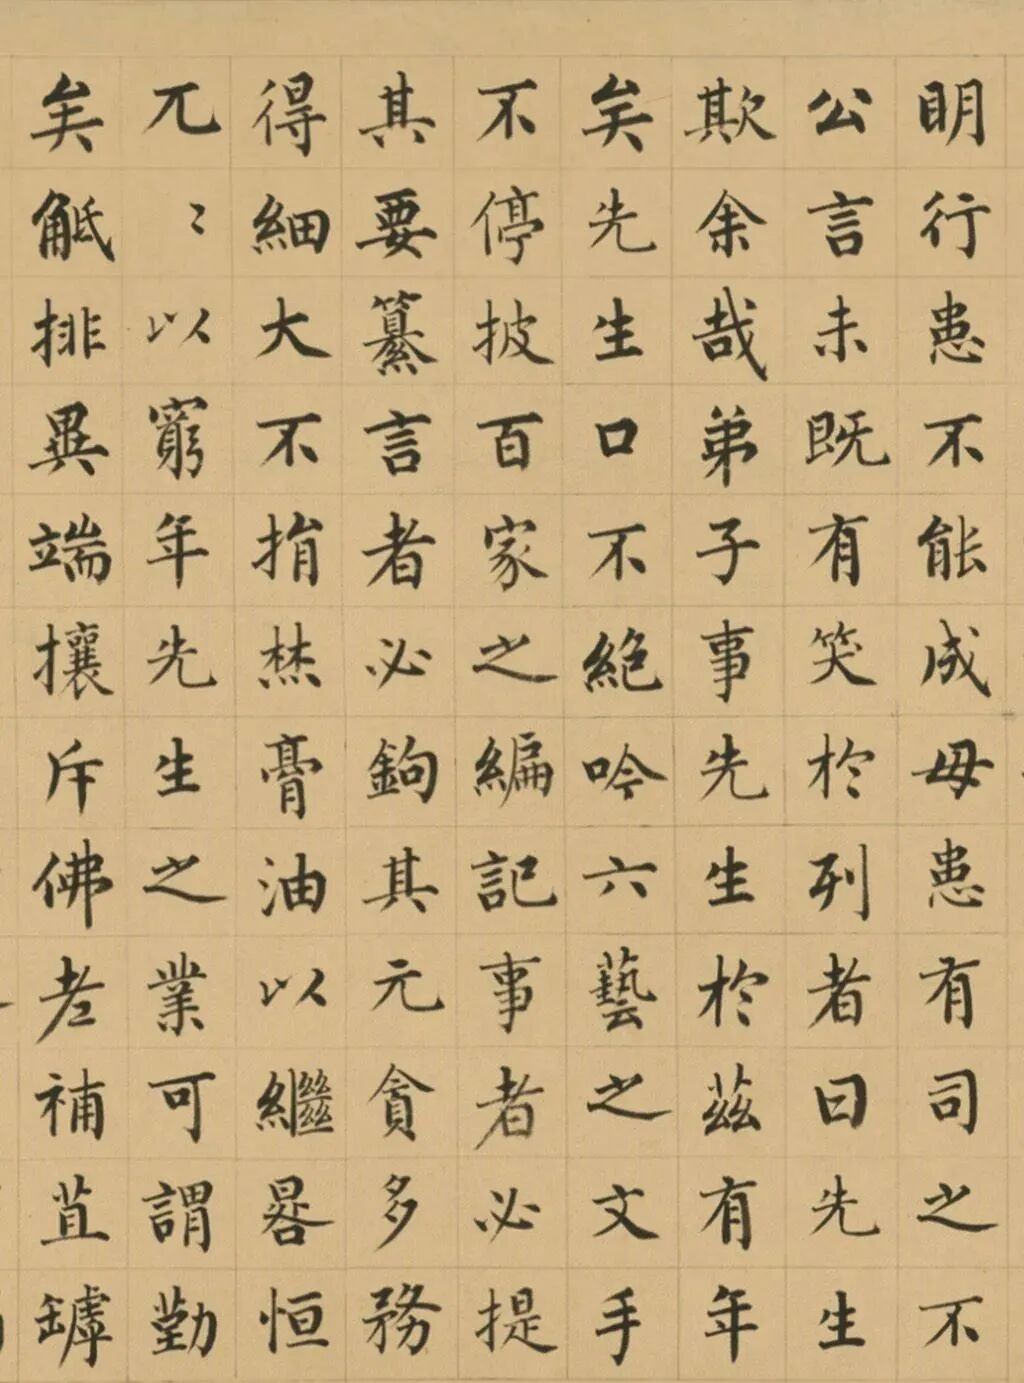 明行患不能成毋患有司之不
公言未既有笑於列者曰先生
欺余哉弟子事先生於茲有年
矣先生口不絕吟六藝之文手
不停披百家之編記事者必提
其要纂言者必鉤其元貪多務
得細大不捐焚膏油以繼晷恒
兀〻以窮年先生之業可謂勤
矣觝排異端攘斥佛老補苴罅